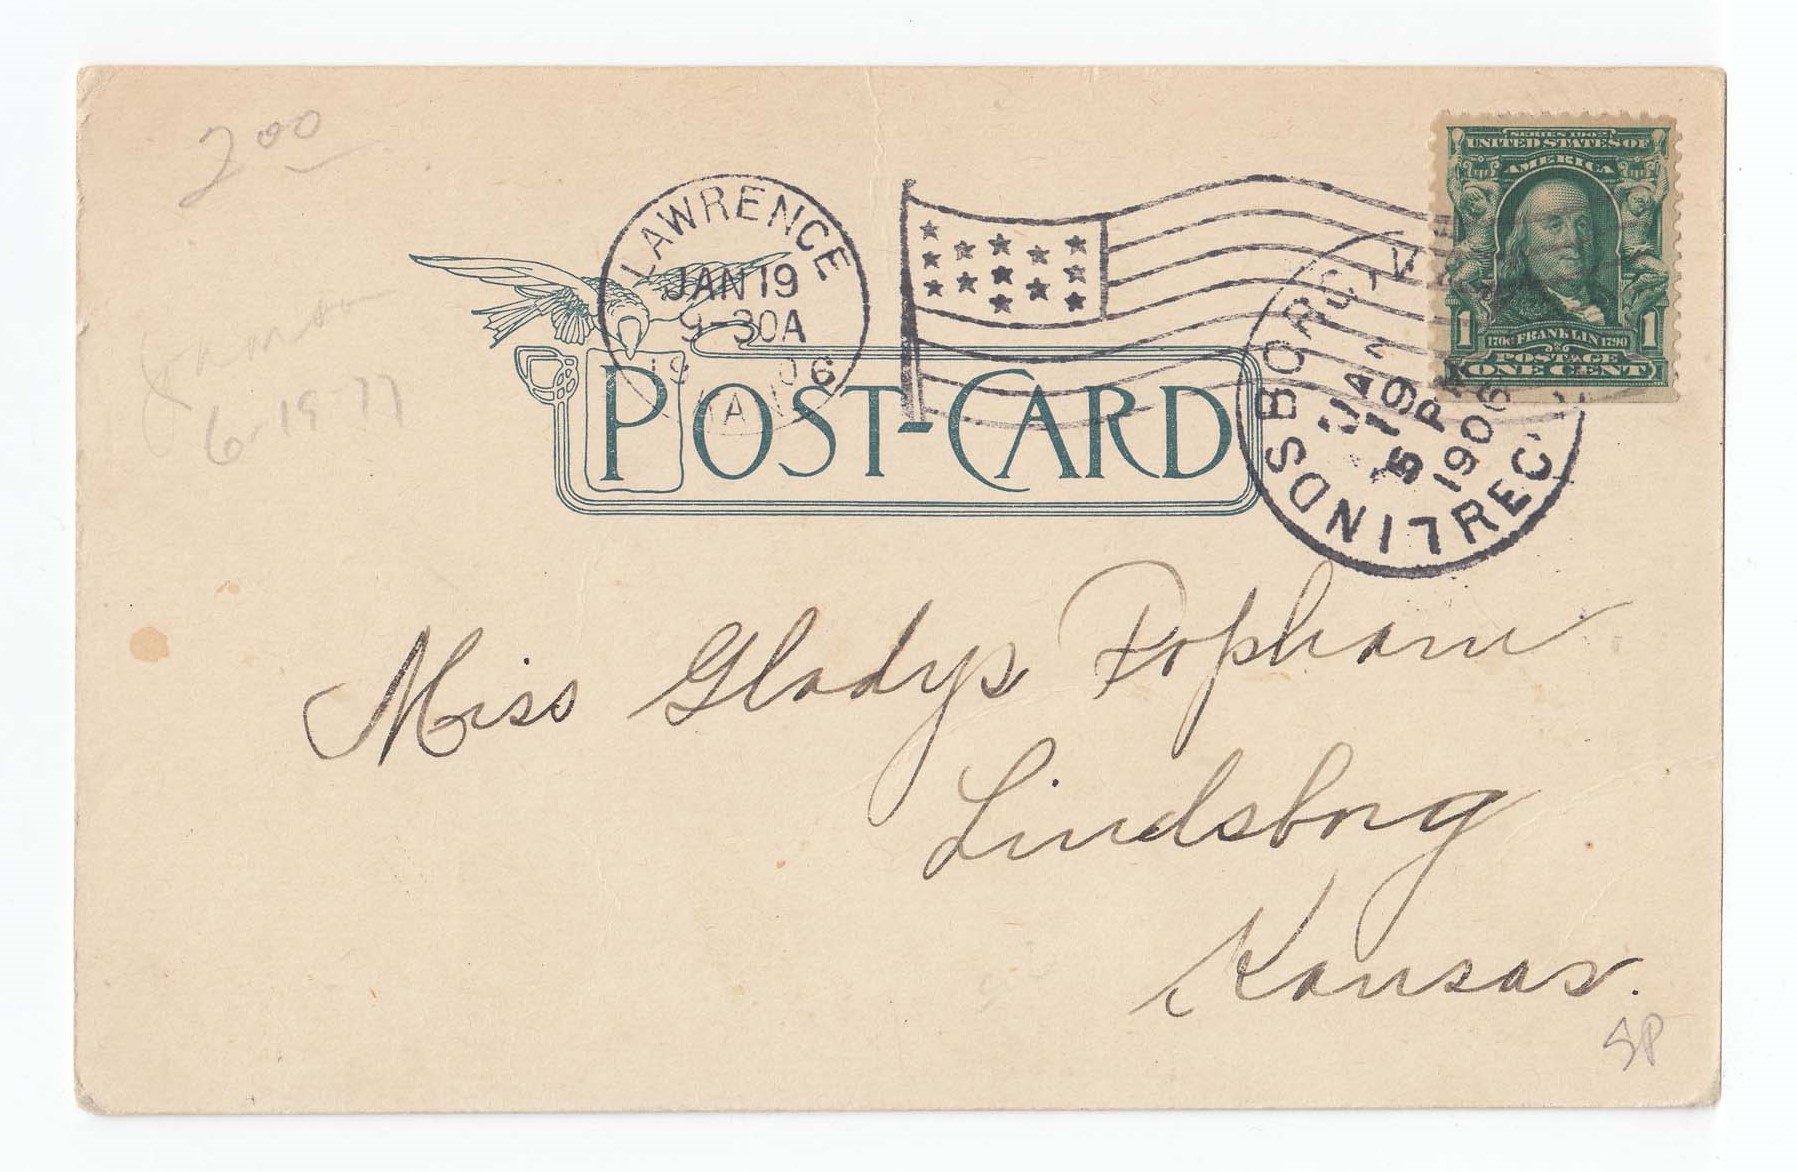 2 00
LAWRENCE
JAN 19
9-30A
1906
SERIES 1902
UNITED STATES OF
AMERICA
1 1706 FRANKLIN 1790 1
POSTAGE
ONE CENT
POST-CARD
LINDSBORG
JAN
19
5 P
1906
REC'D
6-19-77
Miss Gladys Popham
Lindsborg
Kansas.
SP